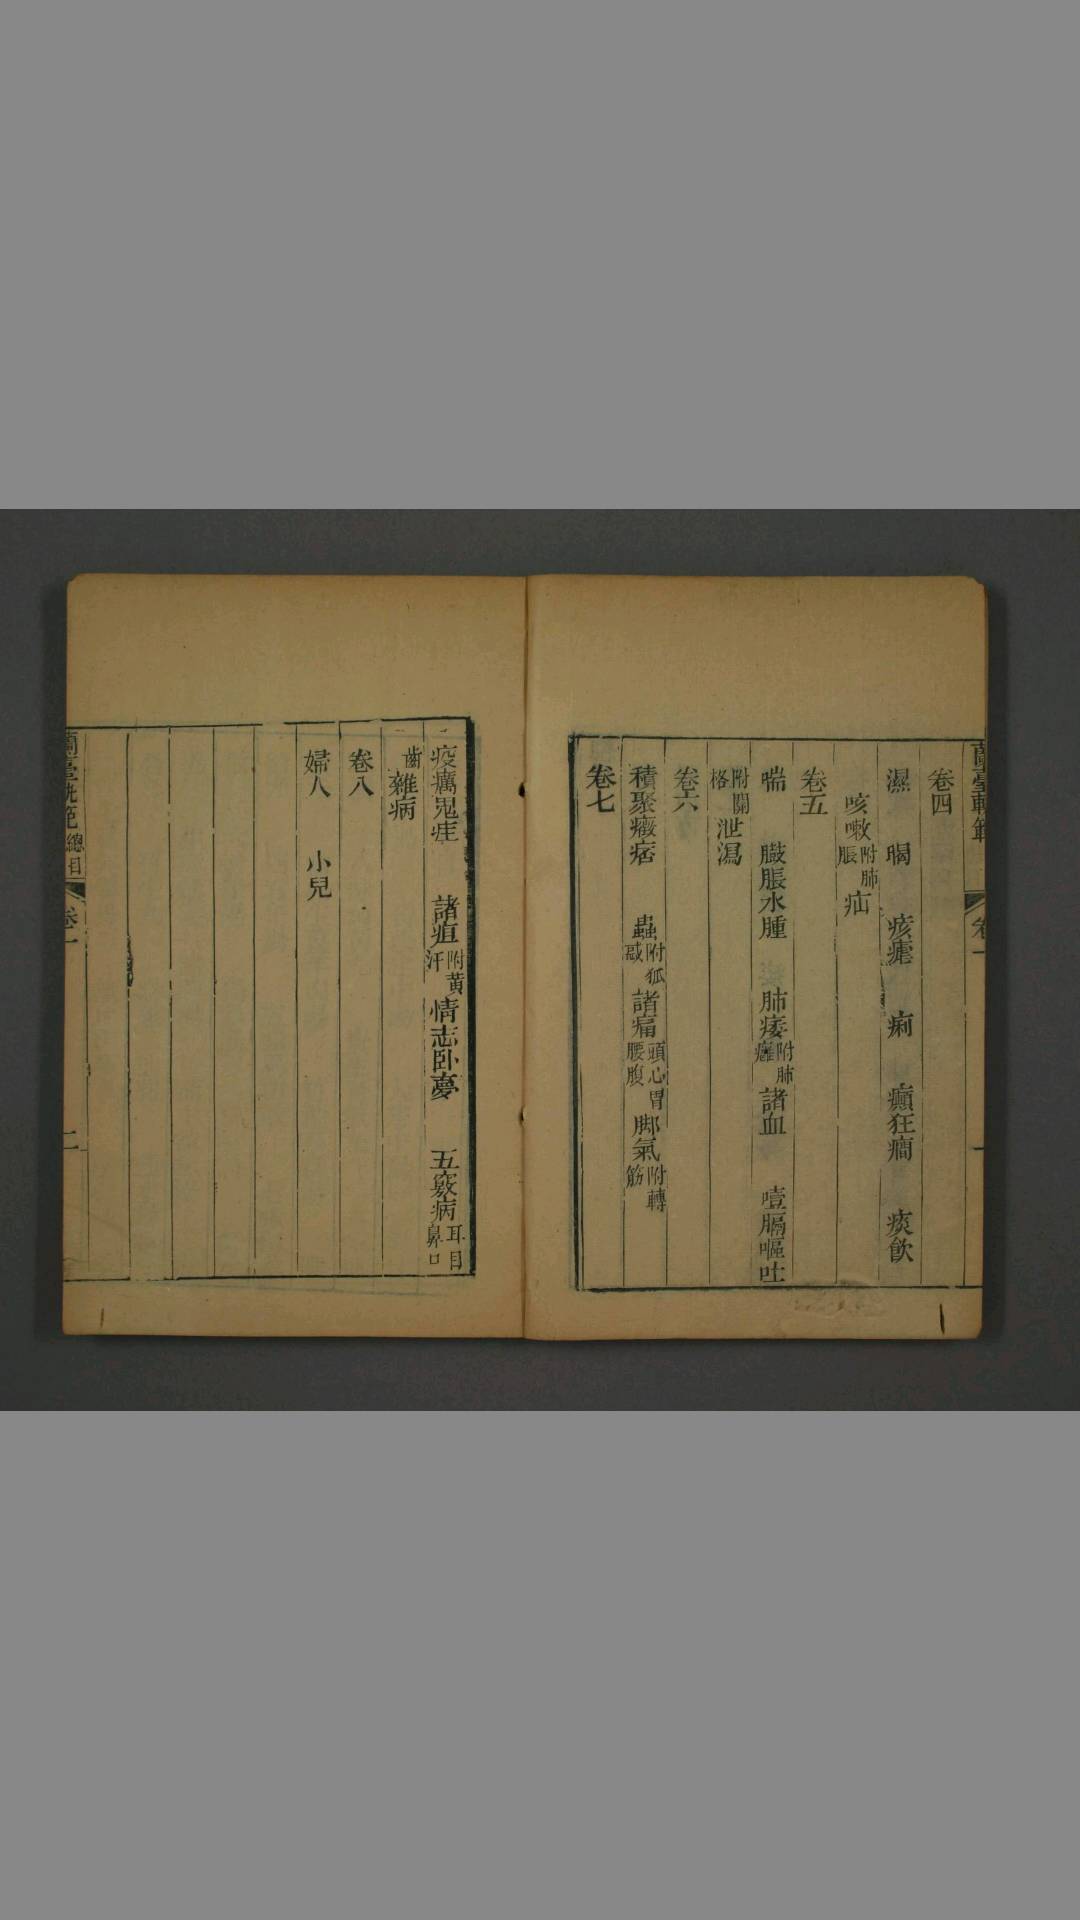 蘭臺軌範
卷一
卷四
濕　暍　痎瘧　痢　癲狂癇　痰飲
咳嗽附肺脹　疝
卷五
喘　臌脹水腫　肺痿附肺癰　諸血　噎膈嘔吐
附關格　泄瀉
卷六
積聚癥痞　蟲附狐惑　諸痛頭心胃腰腹　脚氣附轉筋
卷七
疫癘鬼疰　諸疸附黃汗　情志卧夢　五竅病耳目鼻口
齒　雜病
卷八
婦人　小兒
蘭臺軌範
總目
卷一
二